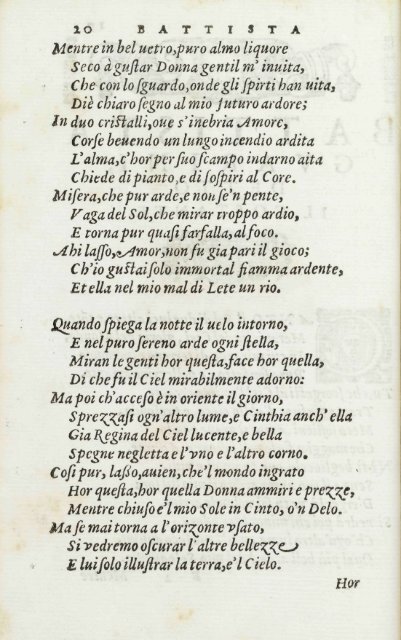 20 BATTISTA
Mentre in bel uetro, puro almo liquore
Seco à gustar Donna gentil m'inuita,
Che con lo sguardo, onde gli spirti han uita,
Diè chiaro segno al mio futuro ardore;
In duo cristalli, oue s'inebria Amore,
Corse beuendo un lungo incendio ardita
L'alma, c'hor per suo scampo indarno aita
Chiede di pianto, e di sospiri al Core.
Misera, che pur arde, e non se'n pente,
Vaga del Sol, che mirar troppo ardio,
E torna pur quasi farfalla, al foco.
Ahi lasso, Amor, non fu gia pari il gioco;
Ch'io gustai solo immortal fiamma ardente,
Et ella nel mio mal di Lete un rio.
Quando spiega la notte il uelo intorno,
E nel puro sereno arde ogni stella,
Miran le genti hor questa, face hor quella,
Di che fu il Ciel mirabilmente adorno:
Ma poi ch'acceso è in oriente il giorno,
Sprezzasi ogn'altro lume, e Cinthia anch'ella
Gia Regina del Ciel lucente, e bella
Spegne negletta e l'vno e l'altro corno.
Cosi pur, lasso, auien, che'l mondo ingrato
Hor questa, hor quella Donna ammiri e prezze,
Mentre chiuso e'l mio Sole in Cinto, o'n Delo.
Ma se mai torna a l'orizonte vsato,
Si vedremo oscurar l'altre bellezze
E lui solo illustrar la terra, e'l Cielo.
Hor